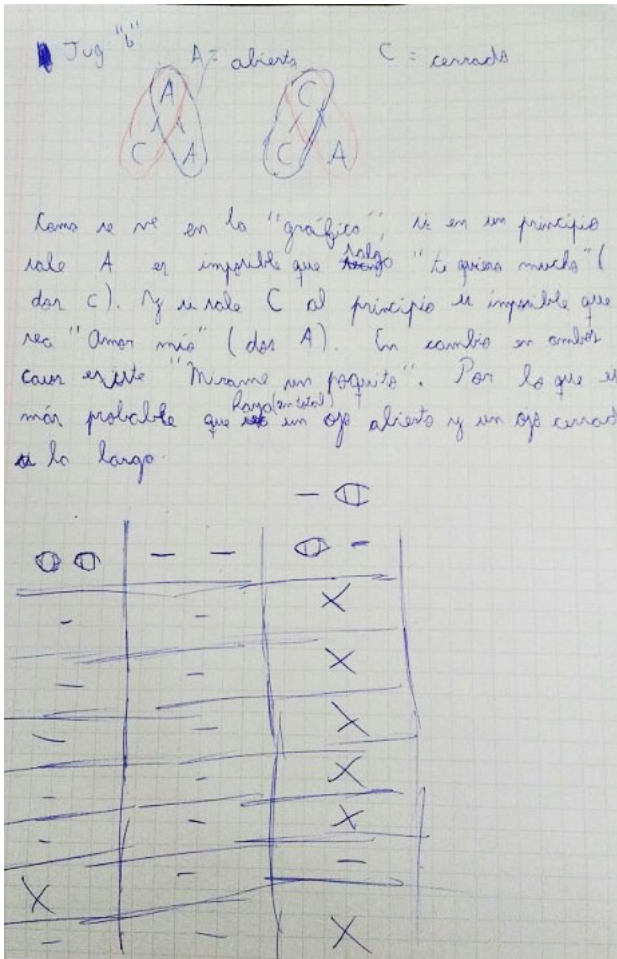 Jug "b"
A = abierto C = cerrado
A C
C A C A
Como se ve en la "gráfica", si en un principio
sale A es imposible que salga "te quiero mucho" (
dos C). Y si sale C al principio es imposible que
sea "Amor mío" (dos A). En cambio en ambos
casos existe "Mirame un poquito". Por lo que es
más probable que haya (en total) un ojo abierto y un ojo cerrad
a lo largo.
- -
- -
X
- - X
- - X
- - X
- - X
- - X
X - -
- - X